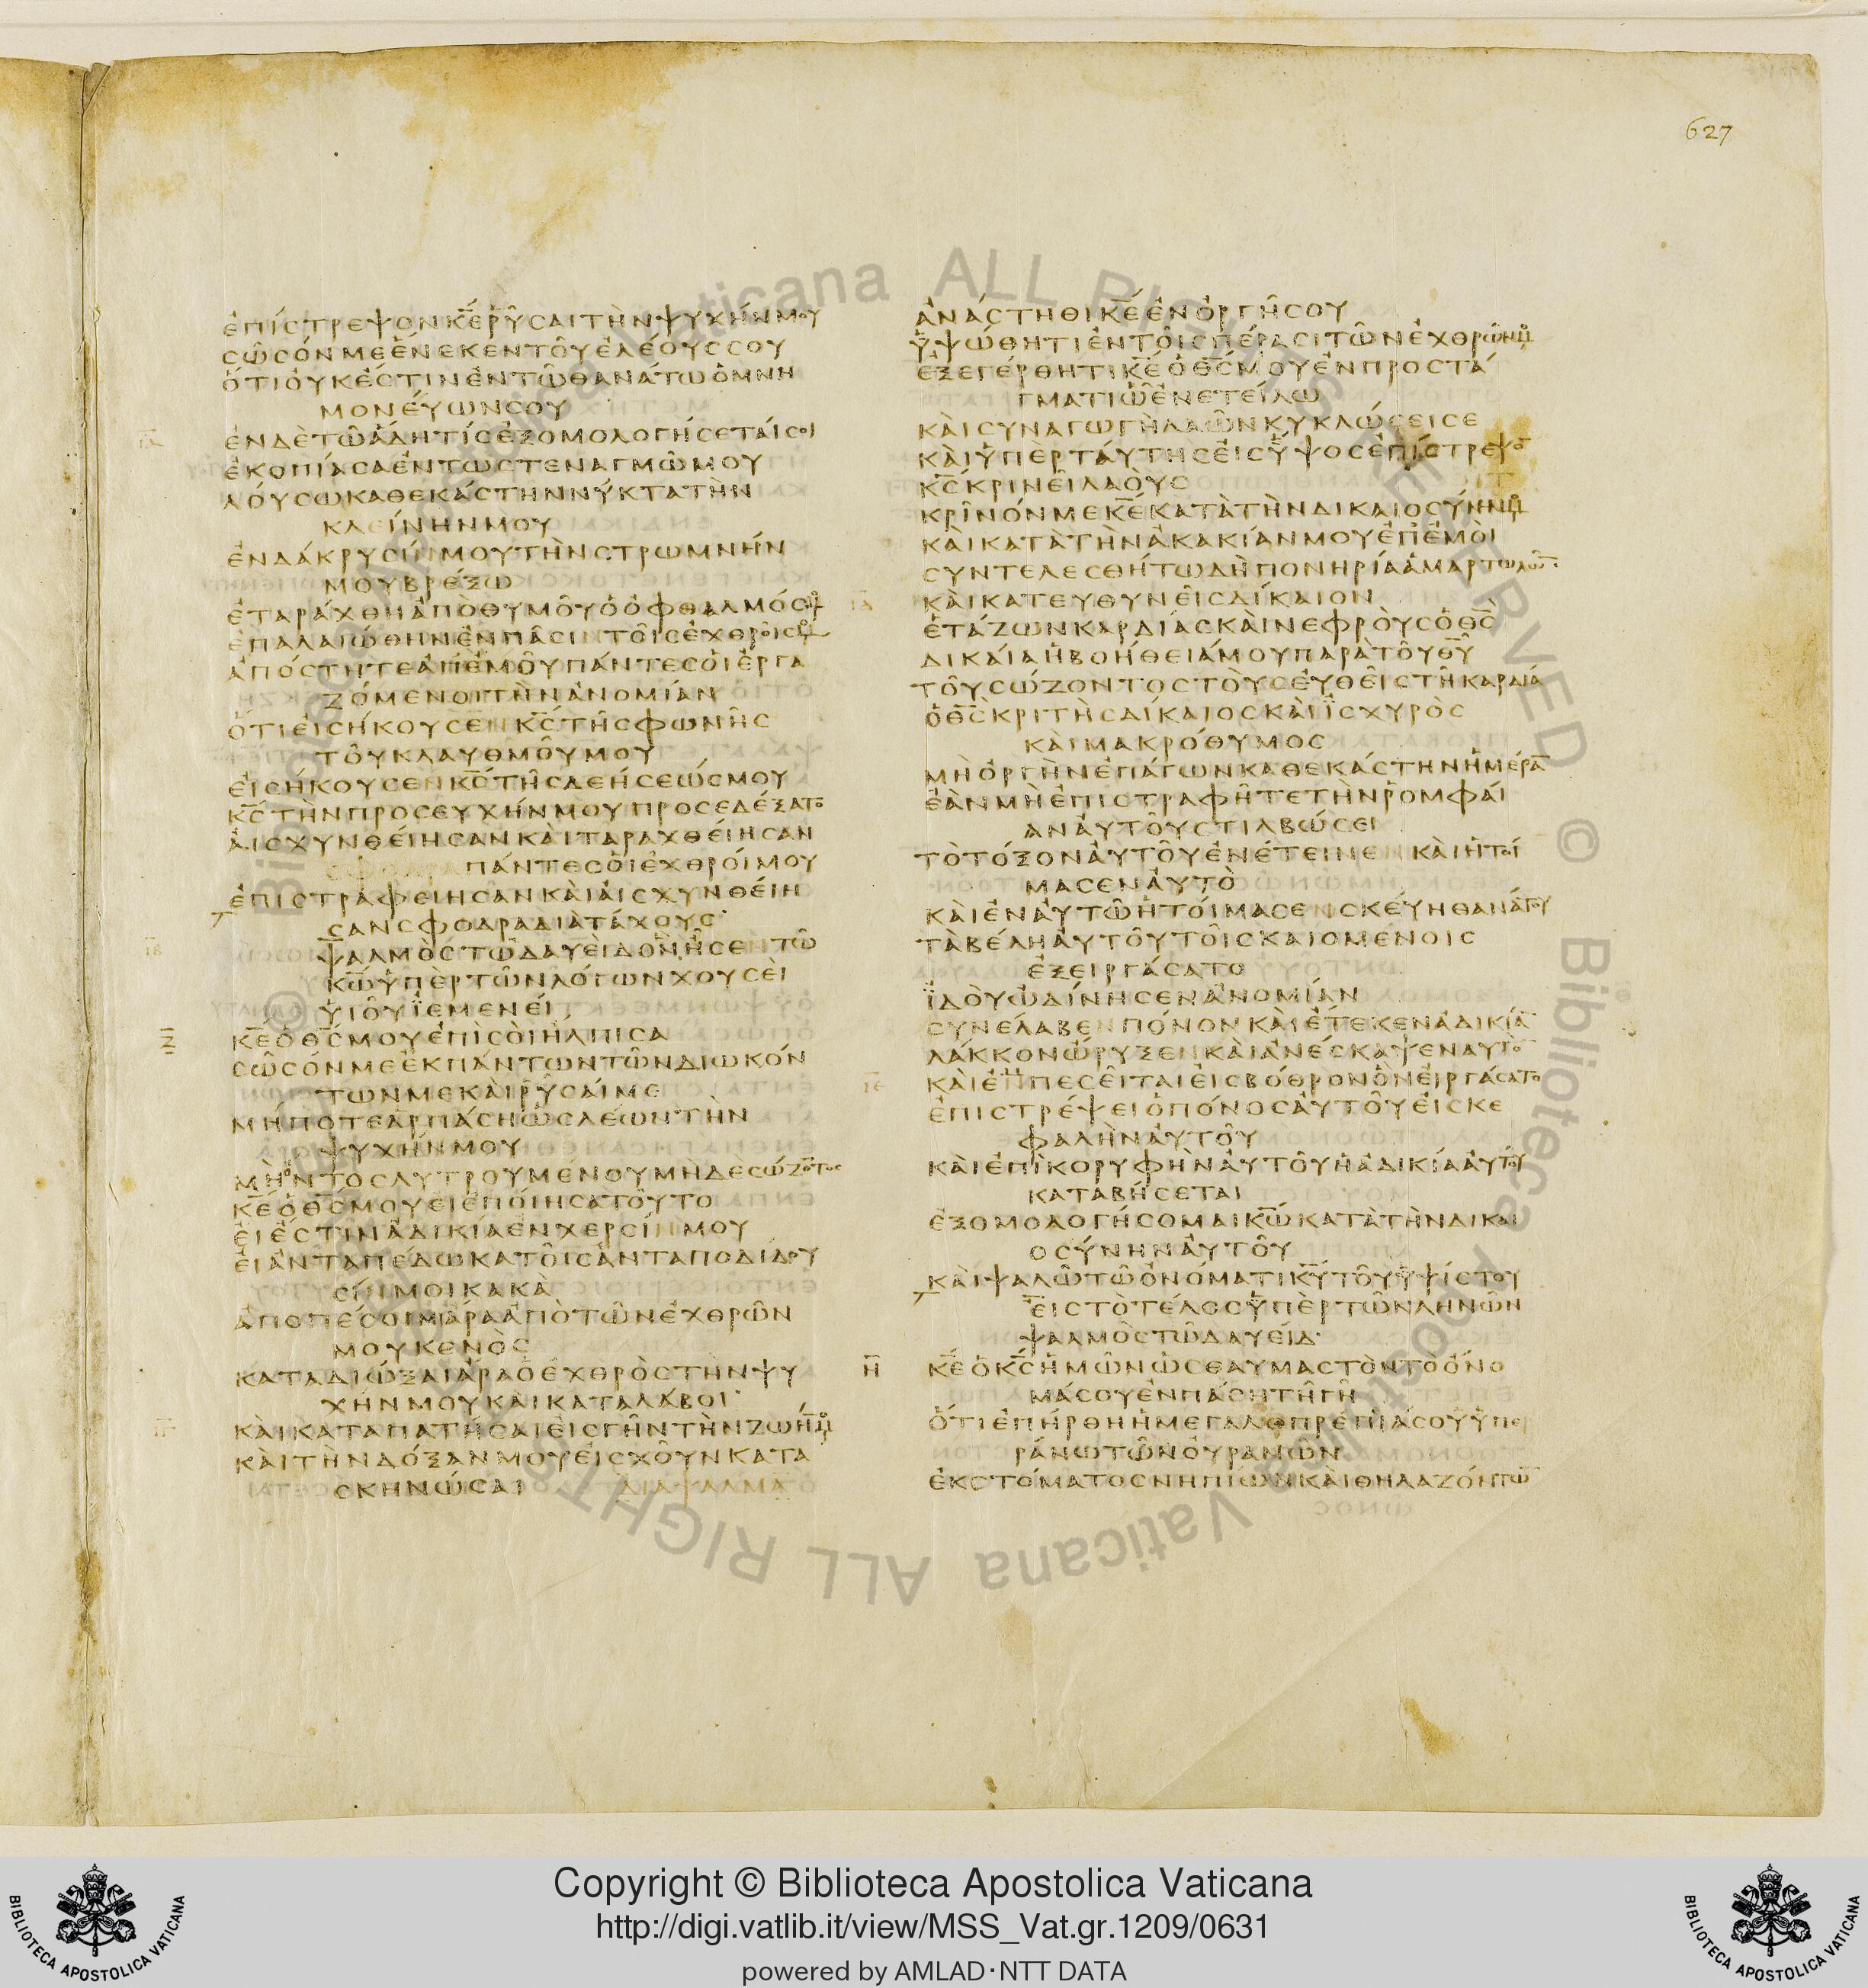 627
ἐπίστρεψον κ̅ε̅ ῥῦσαι τὴν ψυχήν μου
σῶσόν με ἕνεκεν τοῦ ἐλέους σου
ὅτι οὐκ ἔστιν ἐν τῷ θανάτω ὁ μνη
μονεύων σου
ἐν δὲ τῶ ἅδη τίς ἐξομολογήσεταί σοι
ἐκοπίασα ἐν τῶ στεναγμῶ μου
λούσω καθ εκάστην νύκτα τὴν
κλείνην μου
ἐν δάκρυσίν μου τὴν στρωμνήν
μου βρέξω
ἐταράχθη ἀπὸ θυμοῦ ὁ ὀφθαλμός μου
ἐπαλαιώθην ἐν πᾶσιν τοῖς ἐχθροῖς μου
ἀπόστητε ἀπ ἐμοῦ πάντες οἱ ἐργα
ζόμενοι τὴν ἀνομίαν
ὅτι εἰσήκουσεν κ̅ς̅ τῆς φωνῆς
τοῦ κλαυθμοῦ μου
εἰσήκουσεν κ̅ς̅ τῆς δεήσεώς μου
κ̅ς̅ τὴν προσευχήν μου προσεδέξατο
αἰσχυνθείησαν καὶ ταραχθείησαν
σφοδρα πάντες οἱ ἐχθροί μου
ἐπιστραφείησαν καὶ αἰσχυνθείη
σαν σφοδρα διὰ τάχους
ψαλμὸς τῶ δαυεὶδ ὃν ἦσεν τῶ
κ̅ω̅ ὑπὲρ τῶν λόγων χουσεὶ
υἱοῦ ϊεμενεί
Ζ κ̅ε̅ ὁ θ̅ς̅ μου ἐπὶ σοὶ ἤλπισα
σῶσόν με ἐκ πάντων τῶν διωκόν
των με καὶ ῥῦσαί με
μήποτε ἁρπάση ὡς λέων τὴν
ψυχήν μου
μὴ ὄντος λυτρουμένου μηδὲ σώζοντος
κ̅ε̅ ὁ θ̅ς̅ μου ει ἐποίησα τοῦτο
εἰ ἔστιν ἀδικία ἐν χερσίν μου
εἰ ἀνταπέδωκα τοῖς ἀνταποδιδου
σίν μοι κακὰ
ἀποπέσοιμι ἄρα ἀπὸ τῶν ἐχθρῶν
μου κενὸς
καταδιώξαι ἄρα ὁ ἐχθρὸς τὴν ψυ
χήν μου καὶ καταλάβοι
καὶ καταπατήσαι εἰς γῆν τὴν ζωήν μου
καὶ τὴν δόξαν μου εἰς χοῦν κατα
σκηνώσαι διαψαλμα
ἀνάστηθι κ̅ε̅ ἐν ὀργῆ σου
ὑψώθητι ἐν τοῖς πέρασι τῶν ἐχθρῶν μου
ἐξεγέρθητι κ̅ε̅ ὁ θ̅ς̅ μου ἐν προστά
γματι ὧ ἐνετείλω
καὶ συναγωγὴ λαῶν κυκλώσει σε
καὶ ὑπερ ταύτης εἰς ὕψος ἐπίστρεψον
κ̅ς̅ κρινεῖ λαοὺς
κρῖνόν με κ̅ε̅ κατὰ τὴν δικαιοσύνην μου
καὶ κατὰ τὴν ἀκακίαν μου ἐπ ἐμοὶ
συντελεσθήτω δὴ πονηρία ἁμαρτωλῶν
καὶ κατευθυνεῖς δίκαιον
ἐτάζων καρδίας καὶ νεφροὺς ὁ θ̅ς̅
δικαία ἡ βοήθειά μου παρὰ τοῦ θ̅υ̅
τοῦ σώζοντος τοὺς εὐθεῖς τῆ καρδία
ὁ θ̅ς̅ κριτὴς δίκαιος καὶ ἰσχυρὸς
καὶ μακρόθυμος
μὴ ὀργὴν ἐπάγων καθ εκάστην ἡμέραν
ἐὰν μὴ ἐπιστραφῆτε τὴν ῥομφαί
αν αὐτοῦ στιλβώσει
τὸ τόξον αὐτοῦ ἐνέτεινεν καὶ ἡτοί
μασεν αὐτὸ
καὶ ἐν αὐτῶ ἡτοίμασεν σκεύη θανάτου
τὰ βέλη αὐτοῦ τοῖς καιομένοις
ἐξειργάσατο
ϊδοὺ ὠδίνησεν ἀνομίαν
συνέλαβεν πόνον καὶ ἔτεκεν ἀδικίαν
λάκκον ὤρυξεν καὶ ἀνέσκαψεν αυτὸν
καὶ ἐμπεσεῖται εἰς βόθρον ὃν εἰργάσατο
ἐπιστρέψει ὁ πόνος αὐτοῦ εἰς κε
φαλὴν αὐτοῦ
καὶ ἐπὶ κορυφὴν αὐτοῦ ἡ ἀδικία αὐτοῦ
καταβήσεται
ἐξομολογήσομαι κ̅ω̅ κατὰ τὴν δικαι
οσύνην αὐτοῦ
καὶ ψαλῶ τῶ ὀνόματι κ̅υ̅ τοῦ ὑψίστου
εἰς τὸ τέλος ὑπὲρ τῶν ληνῶν
ψαλμὸς τῶ δαυείδ
Η κ̅ε̅ ὁ κ̅ς̅ ἡμῶν ὡς θαυμαστὸν τὸ ὄνο
μά σου ἐν πάση τῆ γῆ
ὅτι ἐπήρθη ἡ μεγαλοπρέπιά σου ὑπε
ράνω τῶν οὐρανῶν
ἐκ στόματος νηπίων καὶ θηλαζόντων
Copyright © Biblioteca Apostolica Vaticana
http://digi.vatlib.it/view/MSS_Vat.gr.1209/0631
powered by AMLAD·NTT DATA
BIBLIOTECA APOSTOLICA VATICANA
BIBLIOTECA APOSTOLICA VATICANA